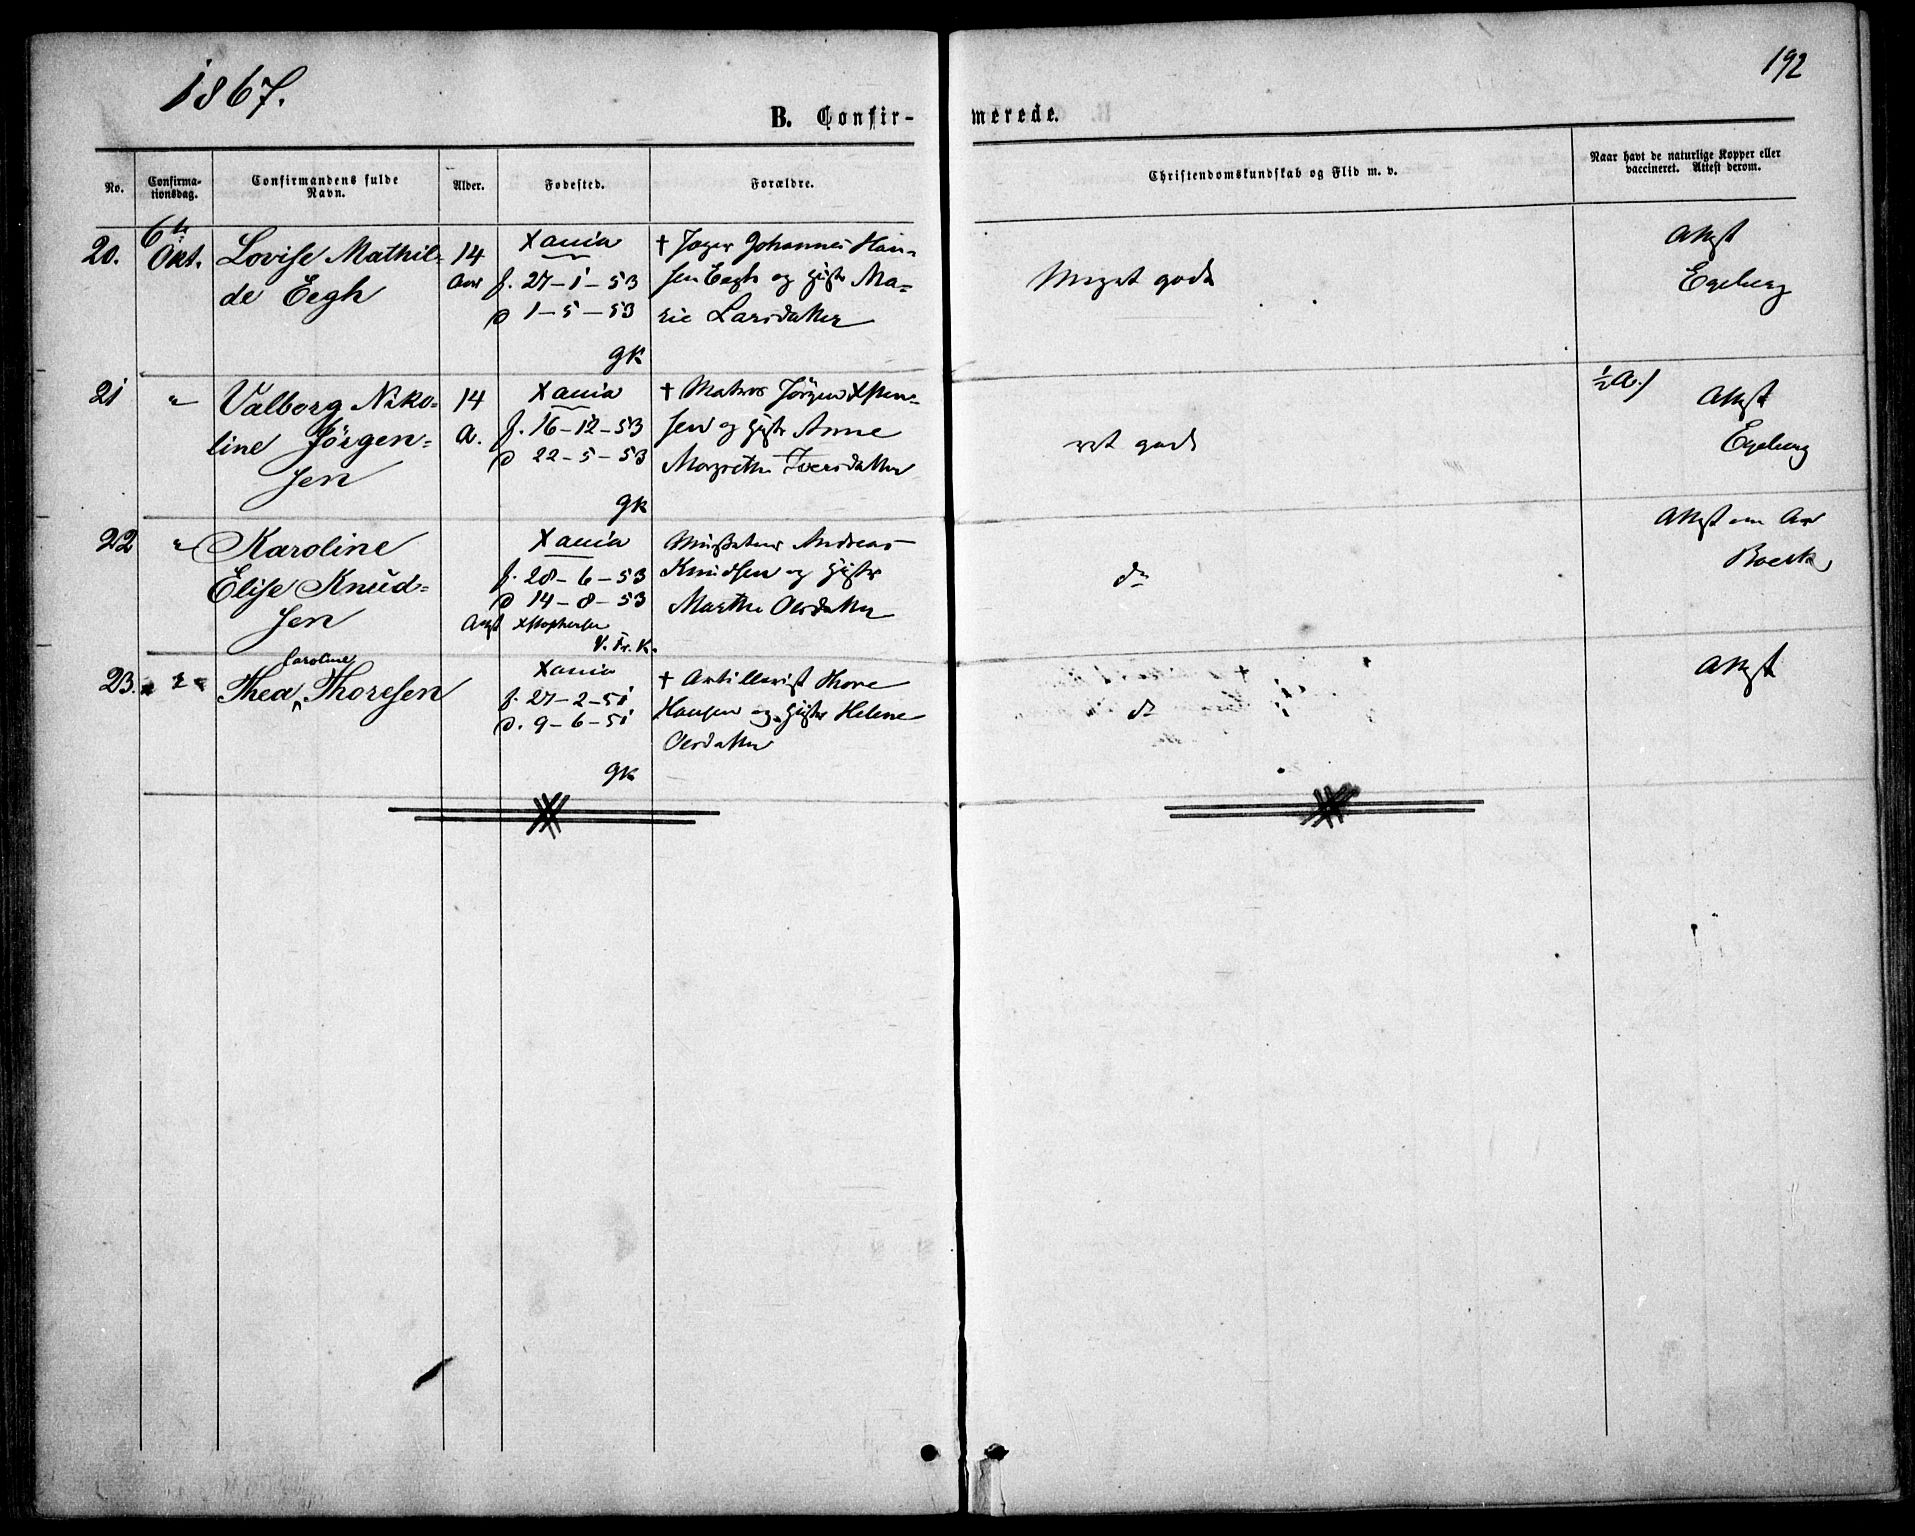 1867.
192
B. Confir-
merede.
No.
Confirma-
tionsdag.
Confirmandens fulde
Navn.
Alder.
Fødested.
Forældre.
Christendomskundskab og Flid m. v.
Naar havt de naturlige Kopper eller
vaccineret. Attest derom.
20.
6te
Okt.
Lovise Mathil-
de Eegh
14
Aar
Xania
f. 27-1-53
D 1-5-53
gk
† Johannes Han-
sen Eegh og Ma-
rie Larsdatter
Meget godt
Attest
Egeberg
21
"
Valborg Niko-
line Jörgen-
sen
14
A.
Xania
f. 16-12-53
D 22-5-53
gk
† Matros Jörgen Xsten-
sen og Anne
Margrethe Iversdatter
ret godt
Attest
Egeberg
22
"
Karoline
Elise Knud-
sen
Xania
f. 28-6-53
D 14-8-53
V. Fr. K.
Andreas
Knudsen og
Marthe Olesdatter
do
Attest
Boeck
23.
"
Caroline
Thea Thoresen
Xania
f. 27-2-51
D. 9-6-51
gk
† Artillerist Thore
Hansen og Helene
Olesdatter
do
Attest